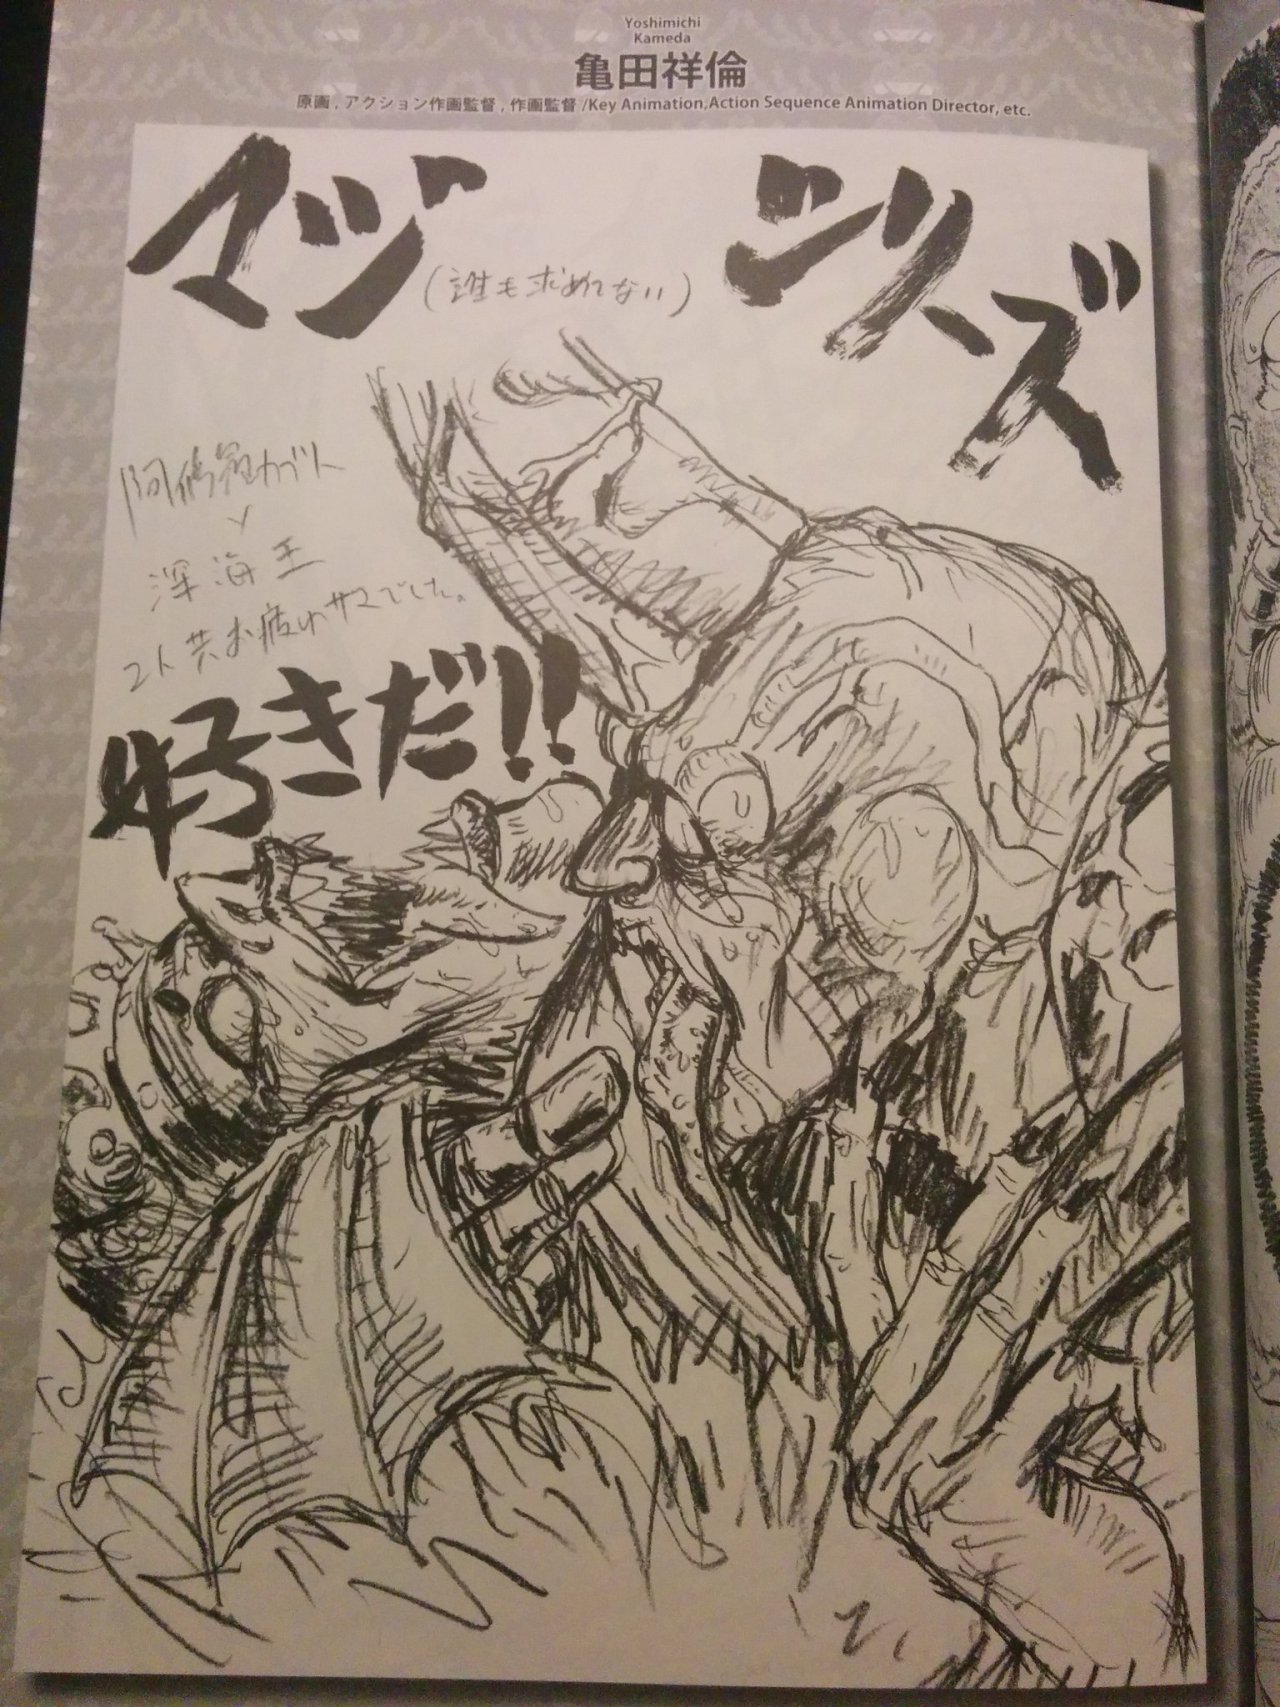 Yoshimichi
Kameda
亀田祥倫
原画,アクション作画監督,作画監督/Key Animation,Action Sequence Animation Director, etc.
マジ
(誰も求めてない)
シリーズ
阿修羅カブト
×
深海王
2人共お疲れサマでした。
好きだ!!